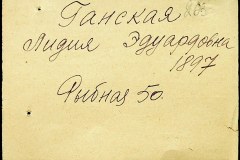 Ганская
Лидия Эдуардовна
1897
Рыбная 50.